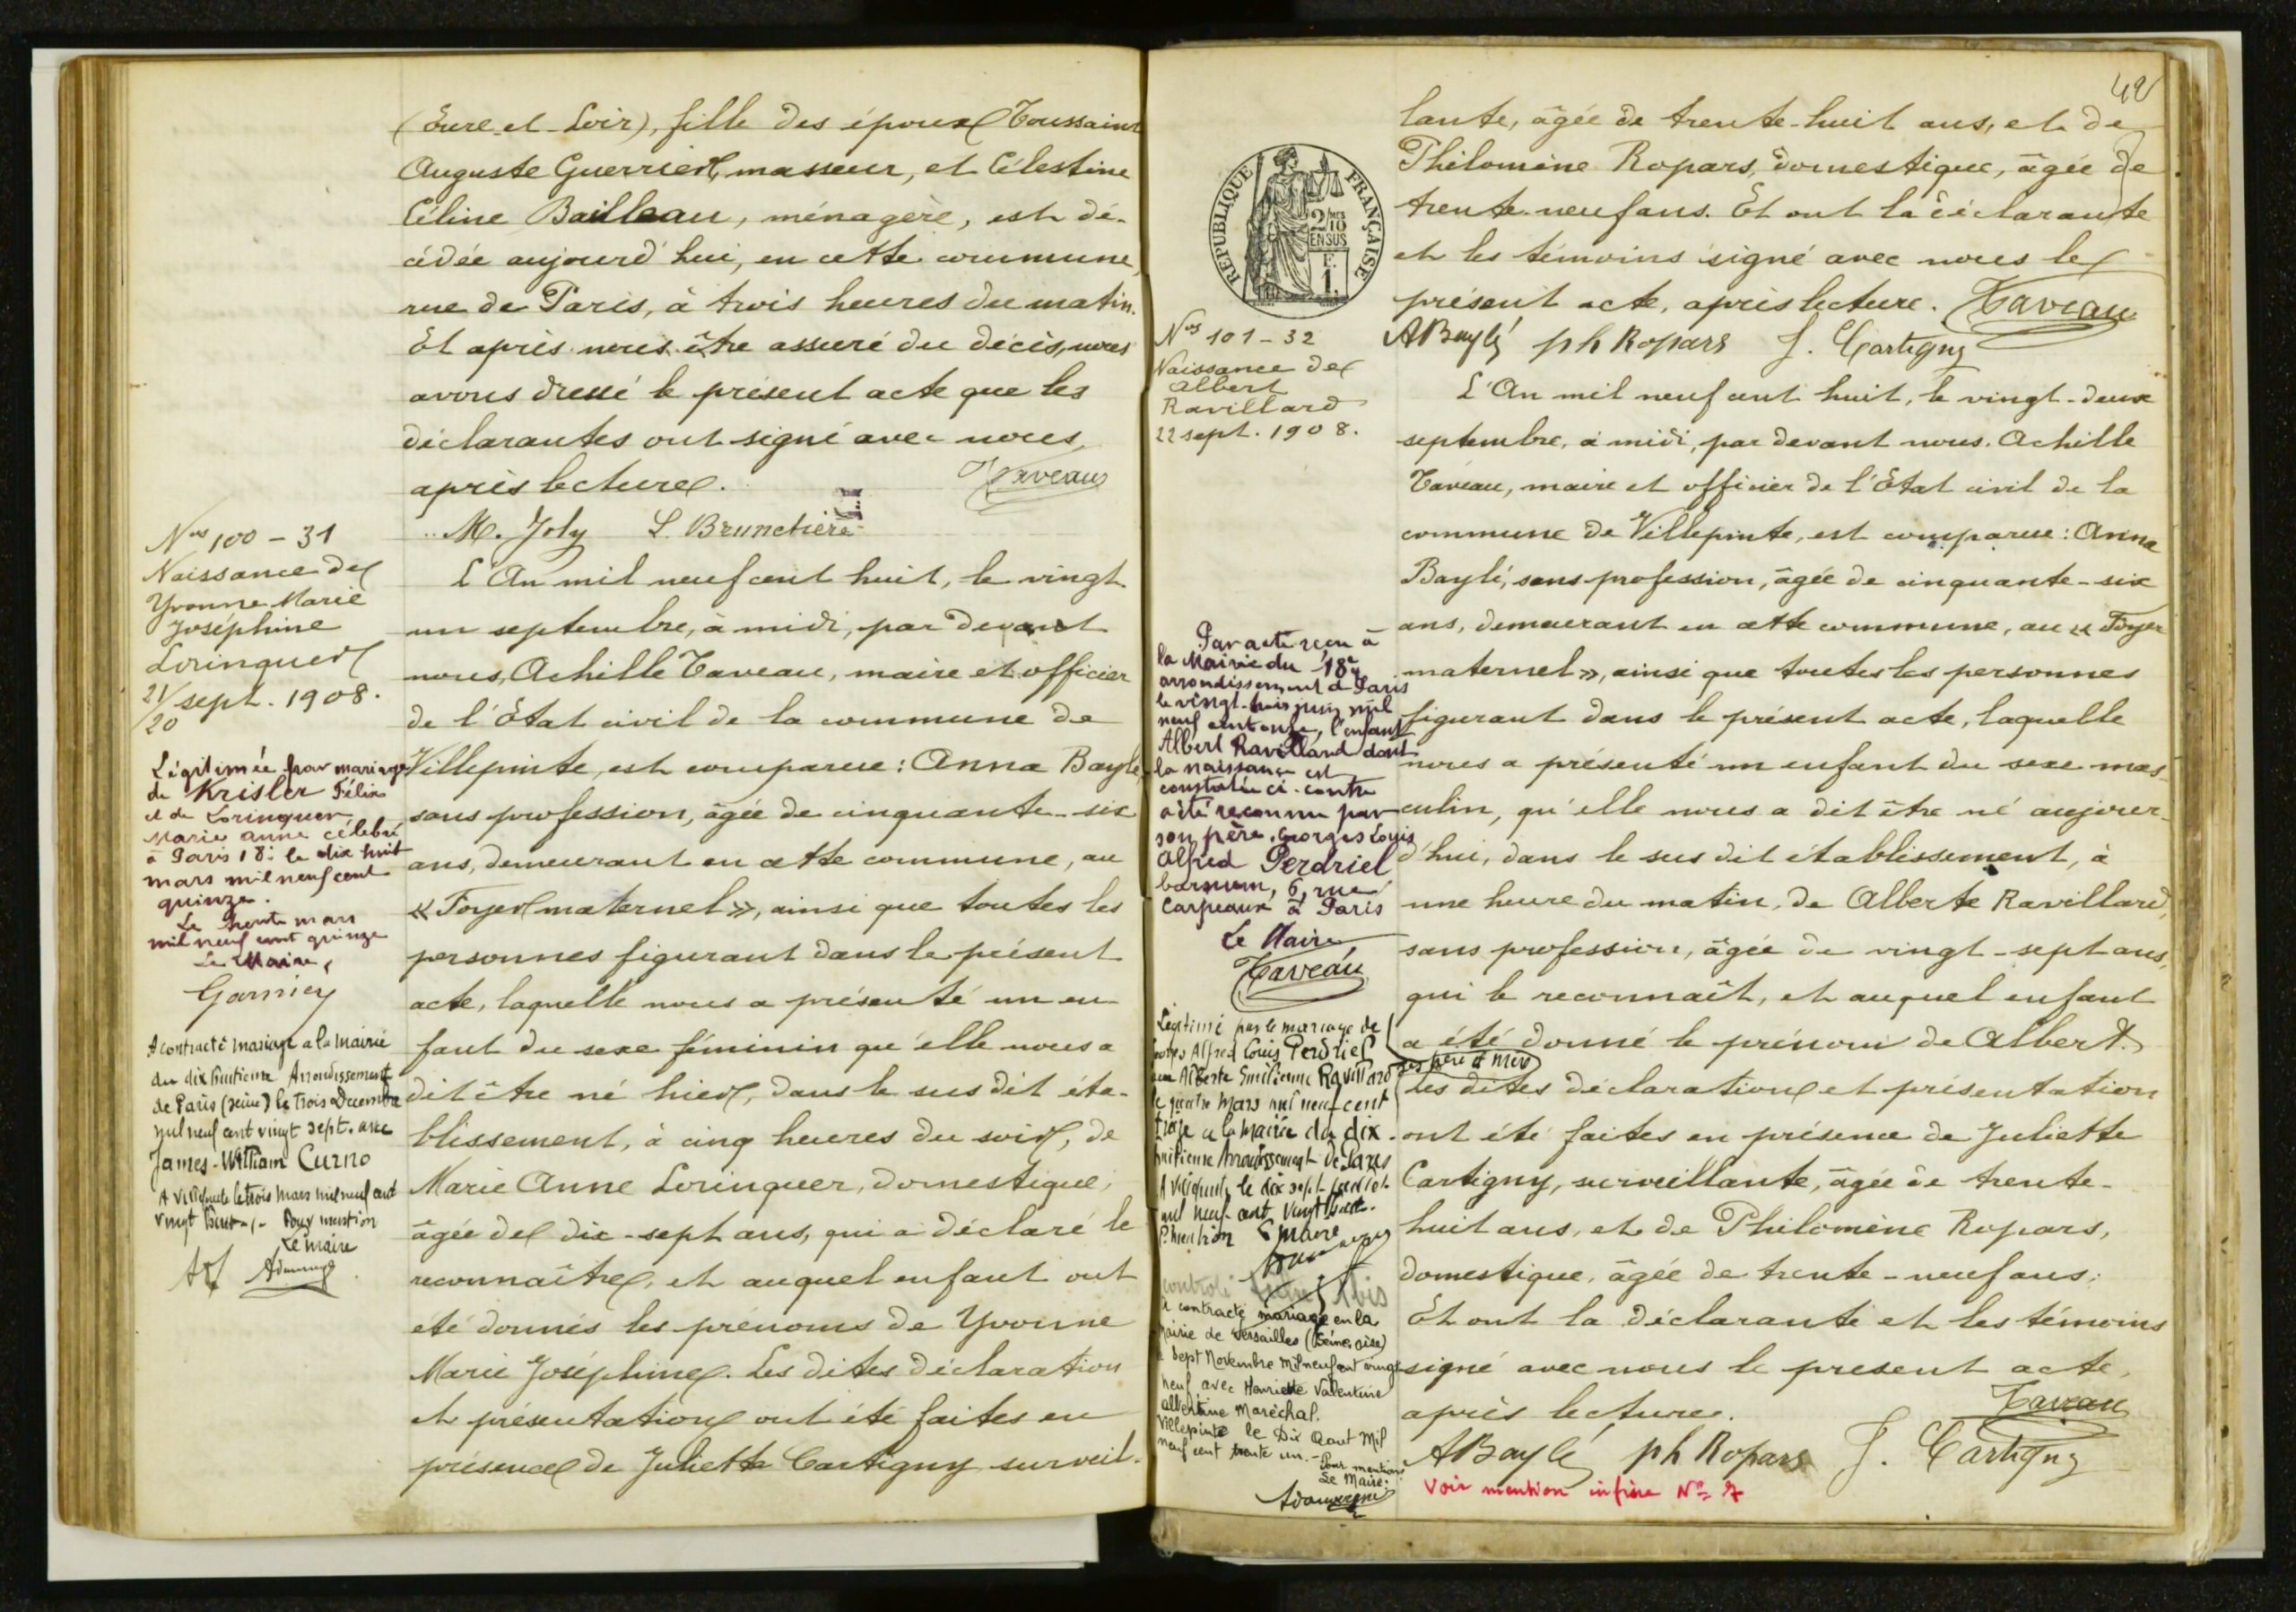 (Eure-et-Loir), fille des époux Toussaint
Auguste Guerrier, masseur, et Célestine
Céline Bailleau, ménagère, est dé-
cédée aujourd'hui, en cette commune,
rue de Paris, à trois heures du matin.
Et après nous être assuré du décès, nous
avons dressé le présent acte que les
déclarantes ont signé avec nous,
après lecture. Taveau
M. Joly L. Brunetière
Nos 100 - 31
Naissance de
Yvonne Marie
Joséphine
Lorinquer
21/20 sept. 1908.
Légitimée par mariage
de Krisler Félix
et de Lorinquer
Marie anne célébré
à Paris 18e le dix huit
mars mil neuf cent
quinze.
Le trente mars
mil neuf cent quinze
Le Maire,
Garnier
A contracté mariage a la Mairie
du dix huitieme Arrondissement
de Paris (seine) le trois Decembre
mil neuf cent vingt sept. avec
James-William Curno
A Villepinte le trois Mars mil neuf cent
vingt huit -,- Pour mention
Le maire
L'An mil neuf cent huit, le vingt
un septembre, à midi, par devant
nous, Achille Taveau, maire et officier
de l'État civil de la commune de
Villepinte, est comparue : Anna Baylé,
sans profession, âgée de cinquante-six
ans, demeurant en cette commune, au
« Foyer maternel », ainsi que toutes les
personnes figurant dans le présent
acte, laquelle nous a présenté un en-
fant du sexe féminin qu'elle nous a
dit être né hier, dans le sus dit éta-
blissement, à cinq heures du soir, de
Marie Anne Lorinquer, domestique,
âgée de dix-sept ans, qui a déclaré le
reconnaître, et auquel enfant ont
été donnés les prénoms de Yvonne
Marie Joséphine. Les dites déclaration
et présentation ont été faites en
présence de Juliette Cartigny surveil-
42
lante, âgée de trente-huit ans, et de
Philomène Ropars, domestique, âgée de
trente-neuf ans. Et ont la déclarante
et les témoins signé avec nous le
présent acte, après lecture. Taveau
ABaylé ph Ropars J. Cartigny
RÉPUBLIQUE FRANÇAISE
2/10
EN SUS
F.
1.
Nos 101 - 32
Naissance de
Albert
Ravillard
22 sept. 1908.
Par acte reçu à
la Mairie du 18e
arrondissement de Paris
le vingt-trois juin mil
neuf cent onze, l'enfant
Albert Ravillard dont
la naissance est
constatée ci-contre
a été reconnu par
son père, Georges Louis
Alfred Perdriel
barnum, 6, rue
Carpeaux à Paris
Le Maire,
Taveau
Légitimé par le mariage de
Alfred Louis Perdriel
Alberte Emilienne Ravillard
le quatre Mars mil neuf cent
treize a la Mairie du dix-
huitieme Arrondissement de Paris
A Villepinte, le dix sept
mil neuf cent vingt huit.
P. mention Le maire
contracté mariage en la
Mairie de Versailles (Seine, Oise)
le sept Novembre Mil neuf cent vingt
neuf avec Henriette Valentine
albertine Maréchal.
Villepinte le Dix Aout Mil
neuf cent trente un. - Pour mention
Le Maire:
L'An mil neuf cent huit, le vingt-deux
septembre, à midi, par devant nous, Achille
Taveau, maire et officier de l'État civil de la
commune de Villepinte, est comparue : Anna
Baylé, sans profession, âgée de cinquante-six
ans, demeurant en cette commune, au « Foyer
maternel », ainsi que toutes les personnes
figurant dans le présent acte, laquelle
nous a présenté un enfant du sexe mas-
culin, qu'elle nous a dit être né aujour-
d'hui, dans le sus dit établissement, à
une heure du matin, de Alberte Ravillard,
sans profession, âgée de vingt-sept ans,
qui le reconnaît, et auquel enfant
a été donné le prénom de Albert.
ses père et mère
Les dites déclaration et présentation
ont été faites en présence de Juliette
Cartigny, surveillante, âgée de trente-
huit ans, et de Philomène Ropars,
domestique, âgée de trente-neuf ans.
Et ont la déclarante et les témoins
signé avec nous le present acte,
après lecture. Taveau
ABaylé ph Ropars J. Cartigny
Voir mention in fine No 7